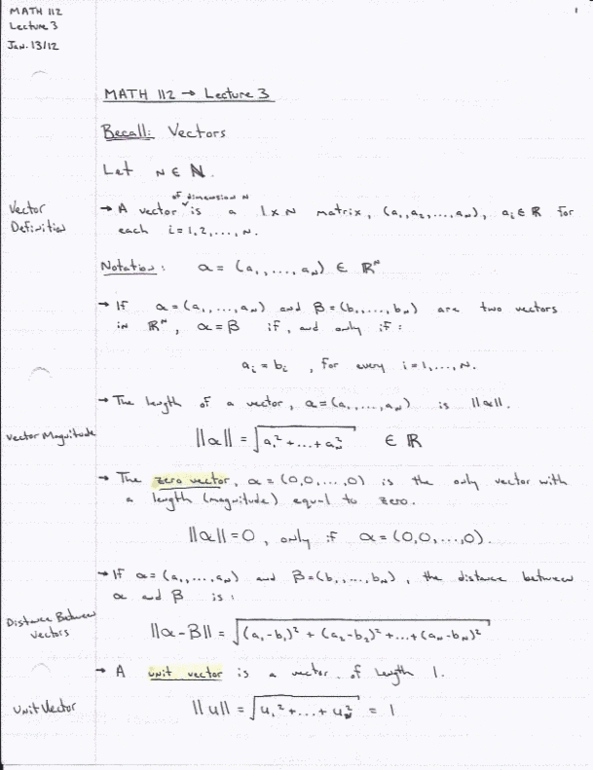 MATH 112
Lecture 3
Jan. 13/12
1
MATH 112 → Lecture 3
Recall: Vectors
Let N ∈ ℕ.
of dimension N
Vector
Definition
→ A vector is a 1×N matrix, (a₁, a₂, ..., aₙ), aᵢ ∈ ℝ for
each i=1,2,...,N.
Notation: α = (a₁, ..., aₙ) ∈ ℝᴺ
→ If α=(a₁,...,aₙ) and β=(b₁,...,bₙ) are two vectors
in ℝᴺ, α=β if, and only if:
aᵢ = bᵢ , for every i=1,...,N.
→ The length of a vector, α=(a₁,...,aₙ) is ||α||.
Vector Magnitude
||α|| = √(a₁²+...+aₙ²) ∈ ℝ
→ The zero vector, α = (0,0,...,0) is the only vector with
a length (magnitude) equal to zero.
||α||=0, only if α=(0,0,...,0).
→ If α=(a₁,...,aₙ) and β=(b₁,...,bₙ), the distance between
α and β is:
Distance Between
Vectors
||α-β|| = √((a₁-b₁)² + (a₂-b₂)² +...+(aₙ-bₙ)²)
→ A unit vector is a vector of length 1.
Unit Vector
||u|| = √(u₁²+...+uₙ²) = 1